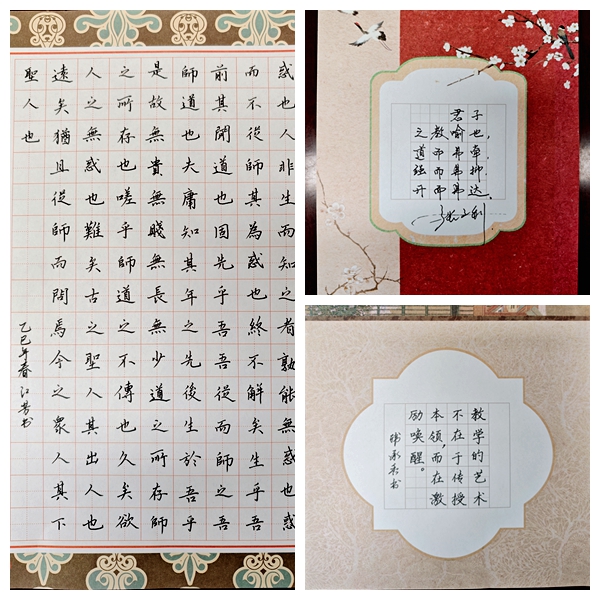 惑也人非生而知之者孰能無惑也惑
而不從師其為惑也終不解矣生乎吾
前其聞道也固先乎吾吾從而師之吾
師道也夫庸知其年之先後生於吾乎
是故無貴無賤無長無少道之所存師
之所存也嗟乎師道之不傳也久矣欲
人之無惑也難矣古之聖人其出人也
遠矣猶且從師而問焉今之眾人其下
聖人也
乙巳年春 江芳书
君子
之教喻也,
道而弗牵,
强而弗抑,
开而弗达。
教学的艺术
不在于传授
本领,而在激
励唤醒。